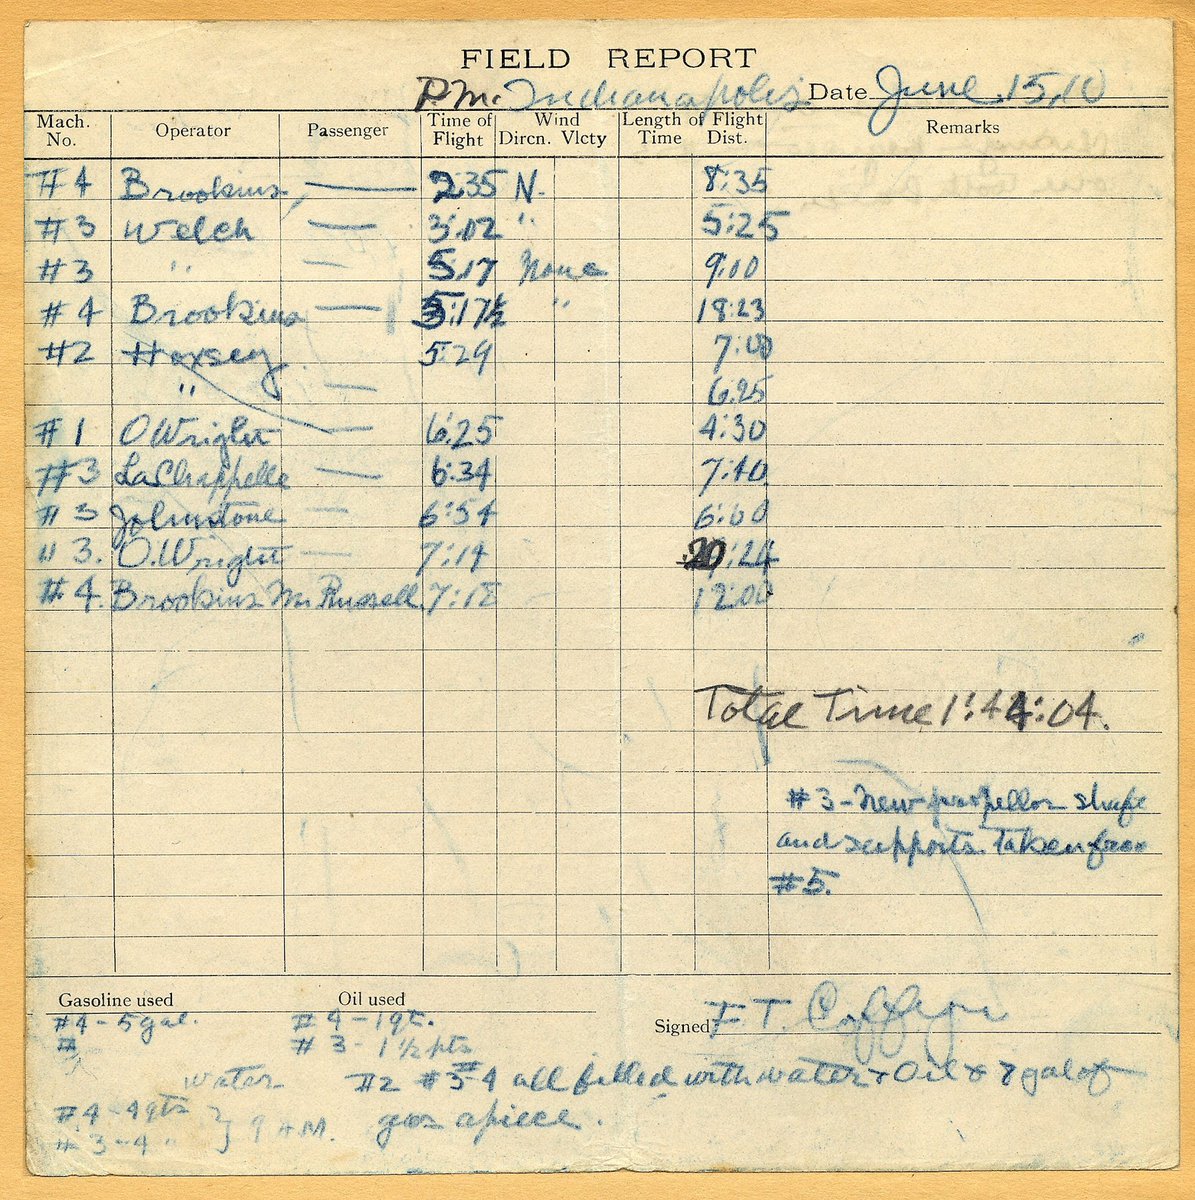 FIELD REPORT
P.M. Indianapolis Date June 15, 10
Mach. No. Operator Passenger Time of Flight Wind Dircn. Vlcty Length of Flight Time Dist. Remarks
#4 Brookins — 2:35 N. 8:35
#3 Welch — 3:02 " 5:25
#3 " — 5:17 None 9:10
#4 Brookins — 5:17½ " 18:23
#2 Hoxsey 5:29 7:00
" — 6:25
#1 O Wright — 6:25 4:30
#3 LaChappelle — 6:34 7:40
#3 Johnstone — 6:54 6:00
" 3. O. Wright — 7:14 20:24
#4. Brookins Mr Russell 7:18 12:00
Total Time 1:44:04.
#3 - New propellor shaft
and supports taken from
#5.
Gasoline used Oil used
#4 - 5 gal. #4 - 1 qt.
# #3 - 1½ pts
Signed F. T. Coffyn
water #2 #3-4 all filled with water & Oil & 8 gal of
#4 - 4 qts gas apiece.
#3 - 4 " } 9 AM.